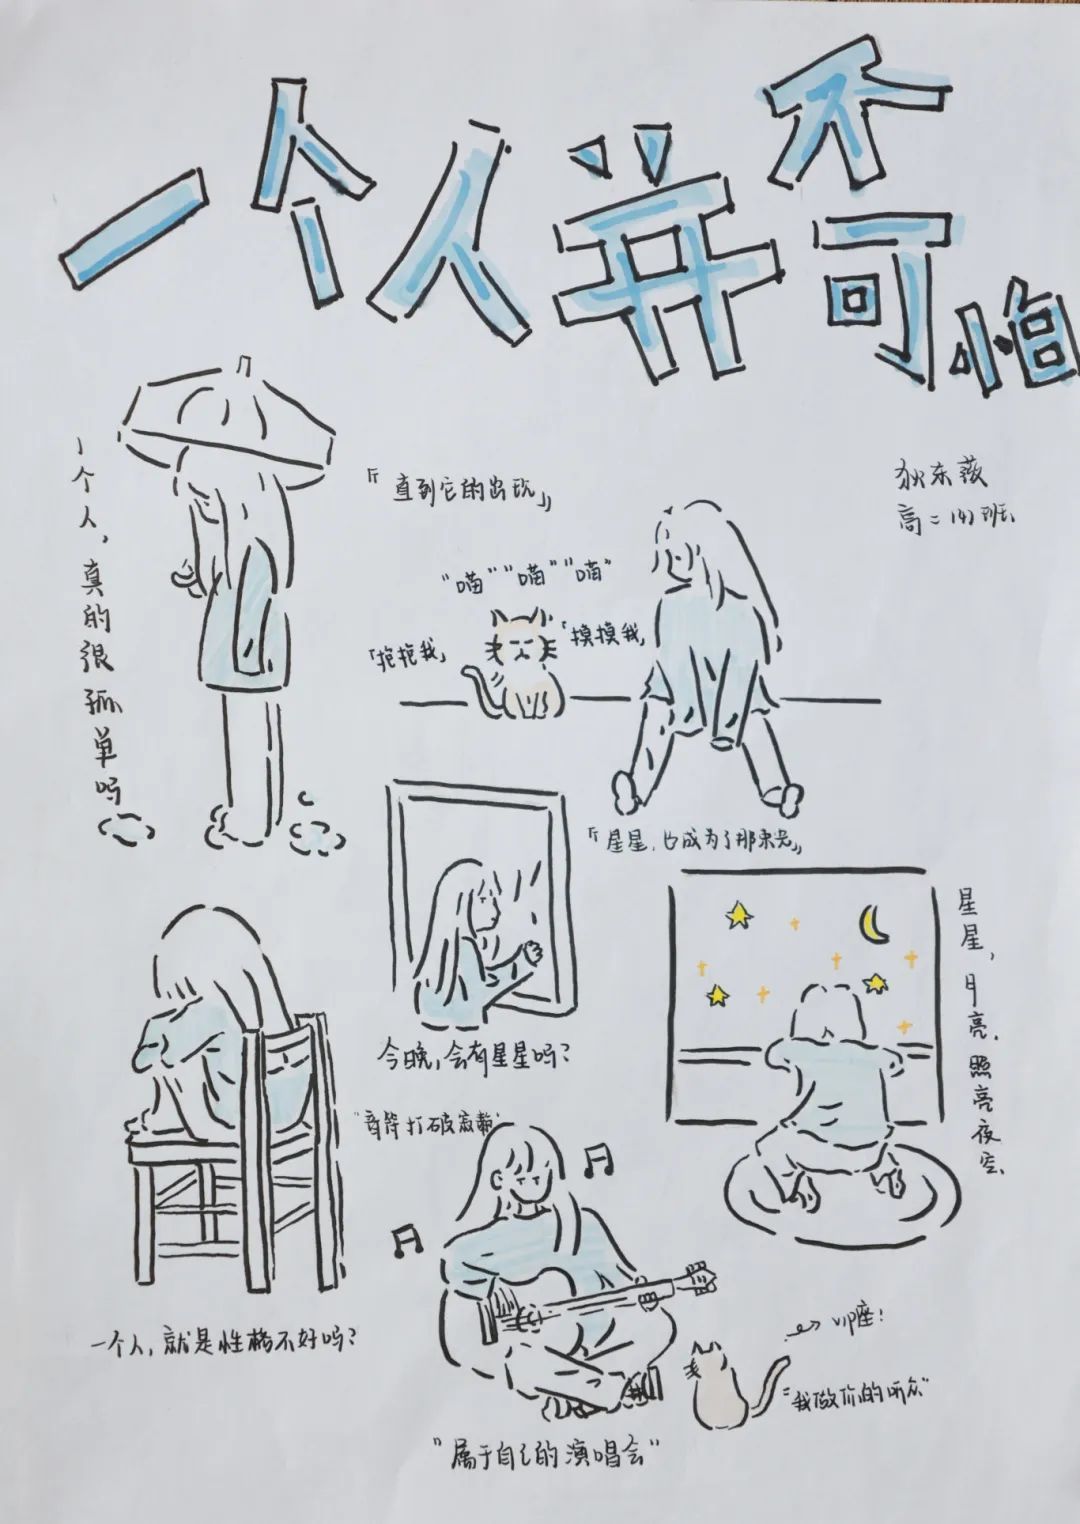 一个人并不可怕
狄东薇
高二(4)班
一个人，真的很孤单吗
「直到它的出现」
“喵”“喵”“喵”
「抱抱我」
「摸摸我」
「星星，也成为了那束光」
今晚，会有星星吗？
星星，月亮，照亮夜空、
一个人，就是性格不好吗？
“音符打破寂静”
VIP座！
“我做你的听众”
“属于自己的演唱会”